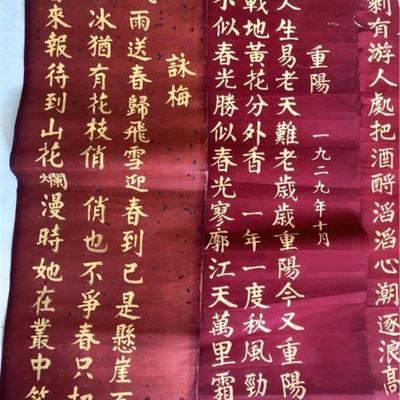 剩有游人處把酒酹滔滔心潮逐浪高
重陽 一九二九年十月
人生易老天難老歲歲重陽今又重陽
戰地黃花分外香 一年一度秋風勁
不似春光勝似春光寥廓江天萬里霜
詠梅
雨送春歸飛雪迎春到已是懸崖百
冰猶有花枝俏 俏也不爭春只把
來報待到山花爛漫時她在叢中笑